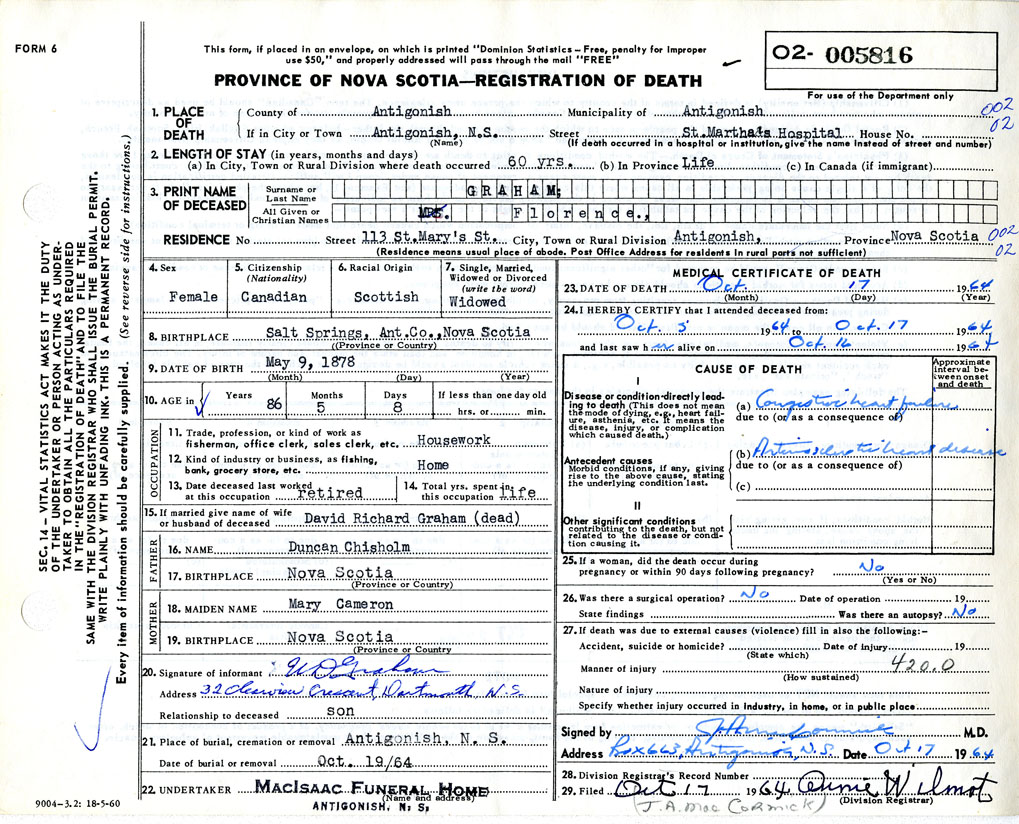 FORM 6
This form, if placed in an envelope, on which is printed "Dominion Statistics – Free, penalty for improper
use $50," and properly addressed will pass through the mail "FREE"
PROVINCE OF NOVA SCOTIA—REGISTRATION OF DEATH
02- 005816
For use of the Department only
1. PLACE OF DEATH
County of Antigonish Municipality of Antigonish 002
If in City or Town Antigonish, N.S. Street St.Martha's Hospital House No. 02
(Name) (If death occurred in a hospital or institution, give the name instead of street and number)
2. LENGTH OF STAY (in years, months and days)
(a) In City, Town or Rural Division where death occurred 60 yrs. (b) In Province Life (c) In Canada (if immigrant)
3. PRINT NAME OF DECEASED
Surname or Last Name GRAHAM;
All Given or Christian Names MRS. Florence.,
RESIDENCE No Street 113 St.Mary's St. City, Town or Rural Division Antigonish, Province Nova Scotia 002
(Residence means usual place of abode. Post Office Address for residents in rural parts not sufficient) 02
4. Sex
Female
5. Citizenship
(Nationality)
Canadian
6. Racial Origin
Scottish
7. Single, Married,
Widowed or Divorced
(write the word)
Widowed
8. BIRTHPLACE Salt Springs, Ant.Co.,Nova Scotia
(Province or Country)
9. DATE OF BIRTH May 9, 1878
(Month) (Day) (Year)
10. AGE in
Years 86
Months 5
Days 8
If less than one day old
hrs. or min.
OCCUPATION
11. Trade, profession, or kind of work as
fisherman, office clerk, sales clerk, etc. Housework
12. Kind of industry or business, as fishing,
bank, grocery store, etc. Home
13. Date deceased last worked
at this occupation retired
14. Total yrs. spent in
this occupation life
15. If married give name of wife
or husband of deceased David Richard Graham (dead)
FATHER
16. NAME Duncan Chisholm
17. BIRTHPLACE Nova Scotia
(Province or Country)
MOTHER
18. MAIDEN NAME Mary Cameron
19. BIRTHPLACE Nova Scotia
(Province or Country)
20. Signature of informant W D Graham
Address 32 Clearview Crescent, Dartmouth, N.S.
Relationship to deceased son
21. Place of burial, cremation or removal Antigonish, N. S.
Date of burial or removal Oct. 19/64
22. UNDERTAKER MACISAAC FUNERAL HOME
(Name and address)
ANTIGONISH, N. S.
MEDICAL CERTIFICATE OF DEATH
23. DATE OF DEATH Oct. 17 1964
(Month) (Day) (Year)
24. I HEREBY CERTIFY that I attended deceased from:
Oct 5 1964 to Oct. 17 1964
and last saw her alive on Oct. 16 1964
CAUSE OF DEATH
Approximate interval between onset and death
I
Disease or condition directly leading
to death (This does not mean
the mode of dying, e.g., heart failure,
asthenia, etc. It means the
disease, injury, or complication
which caused death.)
(a) Congestive heart failure
due to (or as a consequence of)
Antecedent causes
Morbid conditions, if any, giving
rise to the above cause, stating
the underlying condition last.
(b) Arteriosclerotic heart disease
due to (or as a consequence of)
(c)
II
Other significant conditions
contributing to the death, but not
related to the disease or condition
causing it.
25. If a woman, did the death occur during
pregnancy or within 90 days following pregnancy? No
(Yes or No)
26. Was there a surgical operation? No Date of operation 19
State findings Was there an autopsy? No
27. If death was due to external causes (violence) fill in also the following:–
Accident, suicide or homicide? Date of injury 19
(State which)
Manner of injury 420.0
(How sustained)
Nature of injury
Specify whether injury occurred in industry, in home, or in public place
Signed by M.D.
Address Box 663, Antigonish, N.S. Date Oct 17 1964
28. Division Registrar's Record Number
29. Filed Oct 17 1964 Annie Wilmot
(J.A. MacCormick) (Division Registrar)
SEC. 14 – VITAL STATISTICS ACT MAKES IT THE DUTY
OF THE UNDERTAKER OR PERSON ACTING AS UNDERTAKER
TO OBTAIN ALL THE PARTICULARS REQUIRED
IN THE "REGISTRATION OF DEATH" AND TO FILE THE
SAME WITH THE DIVISION REGISTRAR WHO SHALL ISSUE THE BURIAL PERMIT.
WRITE PLAINLY WITH UNFADING INK. THIS IS A PERMANENT RECORD.
Every item of information should be carefully supplied. (See reverse side for instructions.)
9004-3.2: 18-5-60